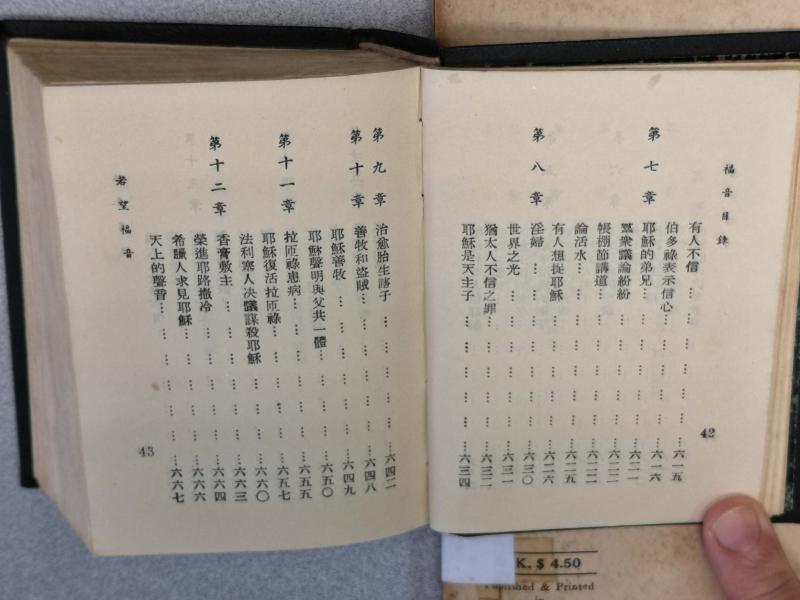 福音目錄
有人不信……………………六一五
伯多祿表示信心……………………六一六
第七章 耶穌的弟兄……………………六一八
羣衆議論紛紛……………………
帳棚節講道……………………
論活水……………………六二五
有人想捉耶穌……………………六二六
第八章 淫婦……………………六三〇
世界之光……………………六三一
猶太人不信之罪……………………六三二
耶穌是天主子……………………六三四
42
第九章 治愈胎生瞎子……………………六四二
第十章 善牧和盜賊……………………六四八
耶穌善牧……………………六四九
耶穌聲明與父共一體……………………六五〇
第十一章 拉匝祿患病……………………六五五
耶穌復活拉匝祿……………………六五七
法利塞人决議謀殺耶穌……………………六六〇
第十二章 香膏敷主……………………六六三
榮進耶路撒冷……………………六六四
希臘人求見耶穌……………………六六六
天上的聲音……………………六六七
若望福音
43
K. $ 4.50
Published & Printed
in